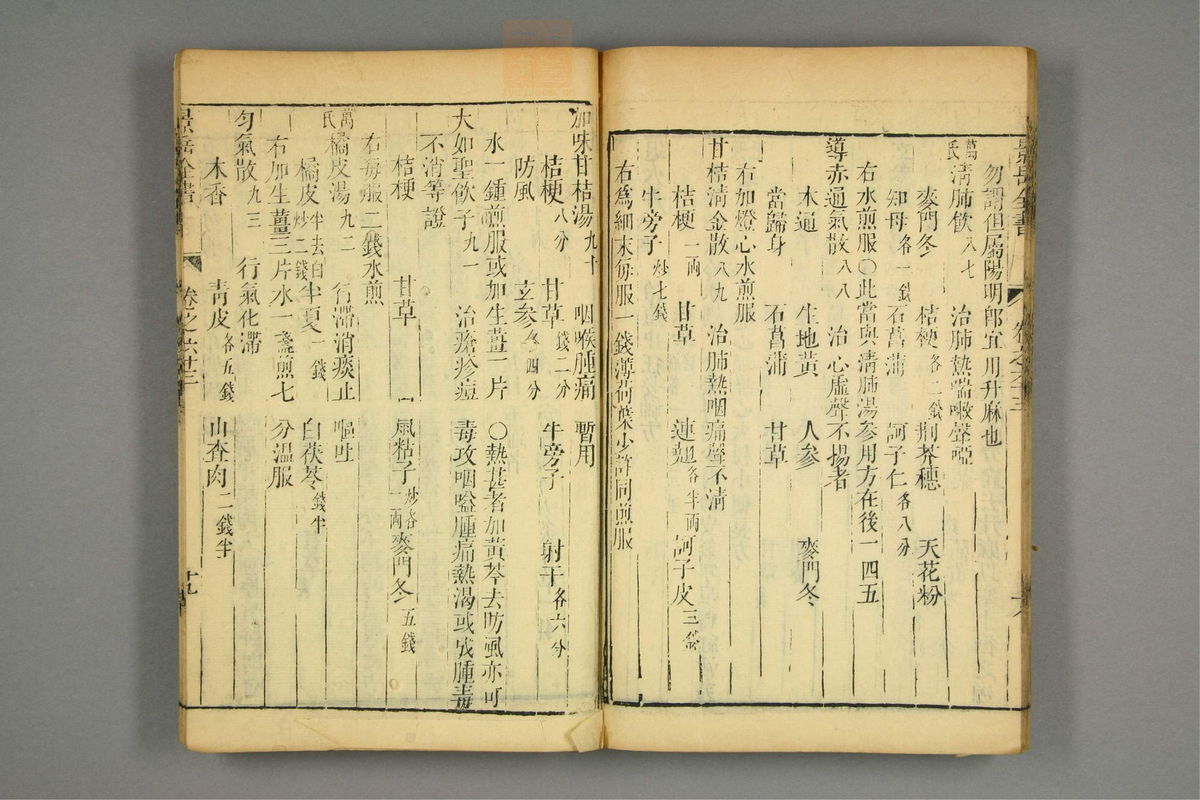 景岳全書
卷之六十三
勿謂但屬陽明郎宜用升麻也
萬氏清肺飲八七 治肺熱喘嗽聲啞
麥門冬 桔梗各二錢 荆芥穗 天花粉
知母各一錢 石菖蒲 訶子仁各八分
右水煎服○此當與清肺湯參用方在後一四五
導赤通氣散八八 治心虛聲不揚者
木通 生地黄 人参 麥門冬
當歸身 石菖蒲 甘草
右加燈心水煎服
甘桔清金散八九 治肺熱咽痛聲不清
桔梗一兩 甘草 連翹各半兩 訶子皮三錢
牛旁子炒七錢
右爲細末每服一錢薄荷葉少許同煎服
加味甘桔湯九十 咽喉腫痛暫用
桔梗八分 甘草錢二分 牛旁子 射干各六分
防風 玄参各四分
水一鍾煎服或加生薑一片○熱甚者加黄芩去防風亦可
大如聖飲子九一 治瘡疹痘毒攻咽嗌腫痛熱渴或成腫毒
不消等證
桔梗 甘草 鼠粘子炒各一兩 麥門冬五錢
右每服二錢水煎
萬氏橘皮湯九二 行滯消痰止嘔吐
橘皮半去白炒二錢 半夏一錢 白茯苓錢半
右加生薑三片水一盞煎七分温服
匀氣散九三 行氣化滯
木香 靑皮各五錢 山查肉二錢半
景岳全書
卷之六十三
十九